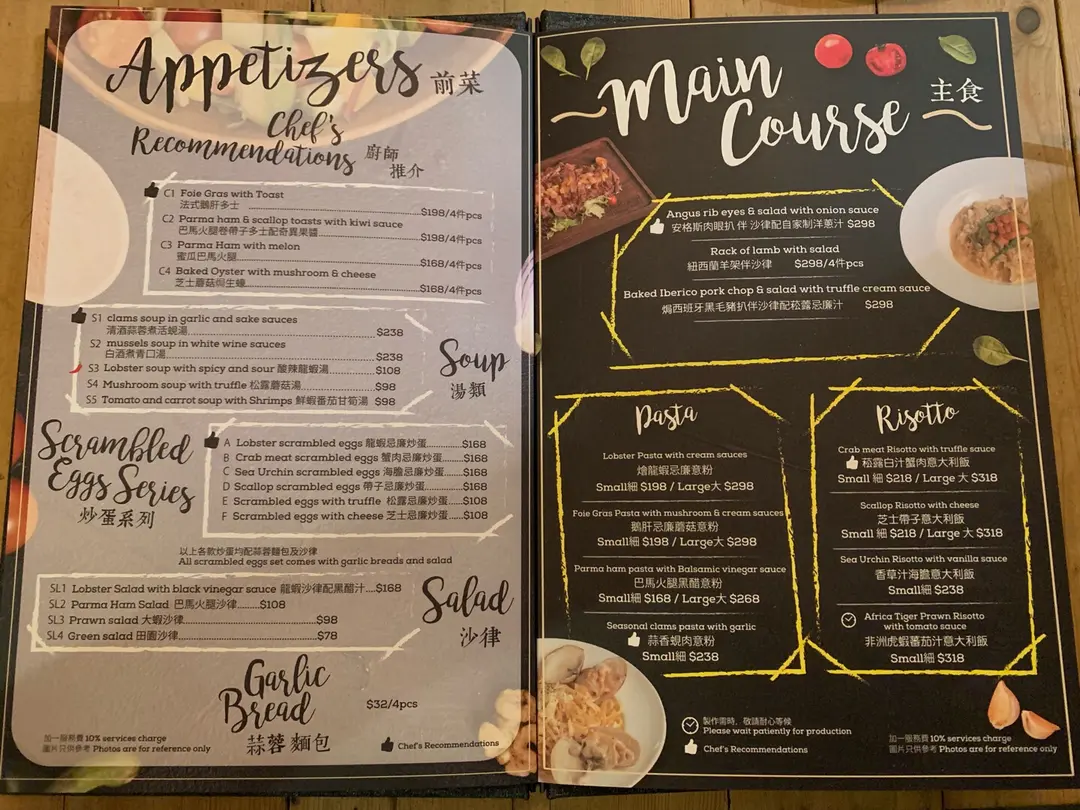 Appetizers 前菜
Chef's
Recommendations 廚師
推介
C1 Foie Gras with Toast
法式鵝肝多士..............$198/4件pcs
C2 Parma ham & scallop toasts with kiwi sauce
巴馬火腿卷帶子多士配奇異果醬..............$198/4件pcs
C3 Parma Ham with melon
蜜瓜巴馬火腿..............$168/4件pcs
C4 Baked Oyster with mushroom & cheese
芝士蘑菇焗生蠔..............$168/4件pcs
S1 clams soup in garlic and sake sauces
清酒蒜蓉煮活蜆湯..............$238
S2 mussels soup in white wine sauces
白酒煮青口湯..............$238
S3 Lobster soup with spicy and sour 酸辣龍蝦湯..............$108
S4 Mushroom soup with truffle 松露蘑菇湯..............$98
S5 Tomato and carrot soup with Shrimps 鮮蝦番茄甘筍湯 $98
Soup
湯類
Scrambled
Eggs Series
炒蛋系列
A Lobster scrambled eggs 龍蝦忌廉炒蛋..............$168
B Crab meat scrambled eggs 蟹肉忌廉炒蛋......$168
C Sea Urchin scrambled eggs 海膽忌廉炒蛋......$168
D Scallop scrambled eggs 帶子忌廉炒蛋..............$168
E Scrambled eggs with truffle 松露忌廉炒蛋......$108
F Scrambled eggs with cheese 芝士忌廉炒蛋......$108
以上各款炒蛋均配蒜蓉麵包及沙律
All scrambled eggs set comes with garlic breads and salad
SL1 Lobster Salad with black vinegar sauce 龍蝦沙律配黑醋汁....$168
SL2 Parma Ham Salad 巴馬火腿沙律..........$108
SL3 Prawn salad 大蝦沙律..............$98
SL4 Green salad 田園沙律..............$78
Salad
沙律
Garlic
Bread
蒜蓉麵包
$32/4pcs
加一服務費 10% services charge
圖片只供參考 Photos are for reference only
Chef's Recommendations
Main
Course
主食
Angus rib eyes & salad with onion sauce
安格斯肉眼扒 伴 沙律配自家制洋蔥汁 $298
Rack of lamb with salad
紐西蘭羊架伴沙律 $298/4件pcs
Baked Iberico pork chop & salad with truffle cream sauce
焗西班牙黑毛豬扒伴沙律配菘露忌廉汁 $298
Pasta
Lobster Pasta with cream sauces
燴龍蝦忌廉意粉
Small細 $198 / Large大 $298
Foie Gras Pasta with mushroom & cream sauces
鵝肝忌廉蘑菇意粉
Small細 $198 / Large大 $298
Parma ham pasta with Balsamic vinegar sauce
巴馬火腿黑醋意粉
Small細 $168 / Large大 $268
Seasonal clams pasta with garlic
蒜香蜆肉意粉
Small細 $238
Risotto
Crab meat Risotto with truffle sauce
菘露白汁蟹肉意大利飯
Small 細 $218 / Large 大 $318
Scallop Risotto with cheese
芝士帶子意大利飯
Small 細 $218 / Large 大 $318
Sea Urchin Risotto with vanilla sauce
香草汁海膽意大利飯
Small細 $238
Africa Tiger Prawn Risotto
with tomato sauce
非洲虎蝦蕃茄汁意大利飯
Small細 $318
製作需時，敬請耐心等候
Please wait patiently for production
Chef's Recommendations
加一服務費 10% services charge
圖片只供參考 Photos are for reference only